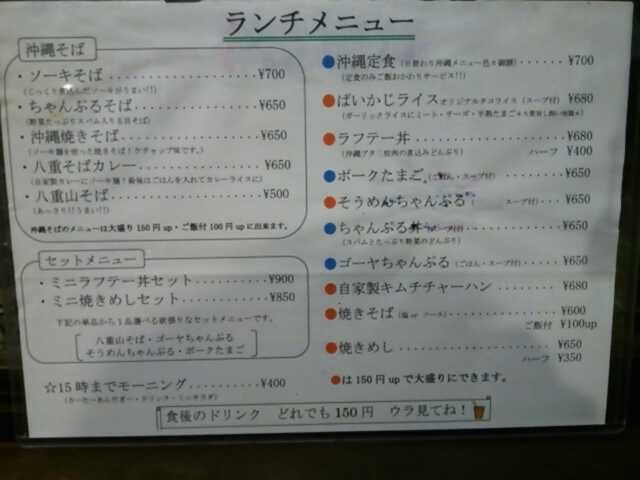 ランチメニュー
沖縄そば
・ソーキそば ¥700
(じっくり煮込んだソーキがうまい!!)
・ちゃんぷるそば ¥650
(野菜たっぷりスパム入り名目そば)
・沖縄焼きそば ¥650
(ソーキ麺を使った焼きそば!ケチャップ味です。)
・八重そばカレー ¥650
(自家製カレーにソーキ麺!最後はごはんを入れてカレーライスに)
・八重山そば ¥500
(あっさり!!うまい!!)
沖縄そばのメニューは大盛り150円up・ご飯付100円upに出来ます。
セットメニュー
・ミニラフテー丼セット ¥900
・ミニ焼きめしセット ¥850
下記の単品から1品選べる欲張りなセットメニューです。
八重山そば・ゴーヤちゃんぷる
そうめんちゃんぷる・ポークたまご
☆15時までモーニング ¥400
(さーたーあんだぎー・ドリンク・ミニサラダ)
●沖縄定食 (日替わり沖縄メニュー色々御膳) ¥700
(定食のみご飯おかわりサービス!!)
●ぱいかじライス オリジナルタコライス (スープ付) ¥680
(ガーリックライスにミート・チーズ・半熟たまご
●ラフテー丼 ¥680
(沖縄ブタ三枚肉の煮込みどんぶり) ハーフ ¥400
●ポークたまご (ごはん・スープ付) ¥650
●そうめんちゃんぷる ( スープ付) ¥650
●ちゃんぷる丼 スープ付) ¥650
(スパムとたっぷり野菜のどんぶり)
●ゴーヤちゃんぷる (ごはん・スープ付) ¥650
●自家製キムチチャーハン ¥680
●焼きそば (塩 or ソース) ¥600
ご飯付 ¥100up
●焼きめし ¥650
ハーフ ¥350
●は150円upで大盛りにできます。
食後のドリンク どれでも150円 ウラ見てね!